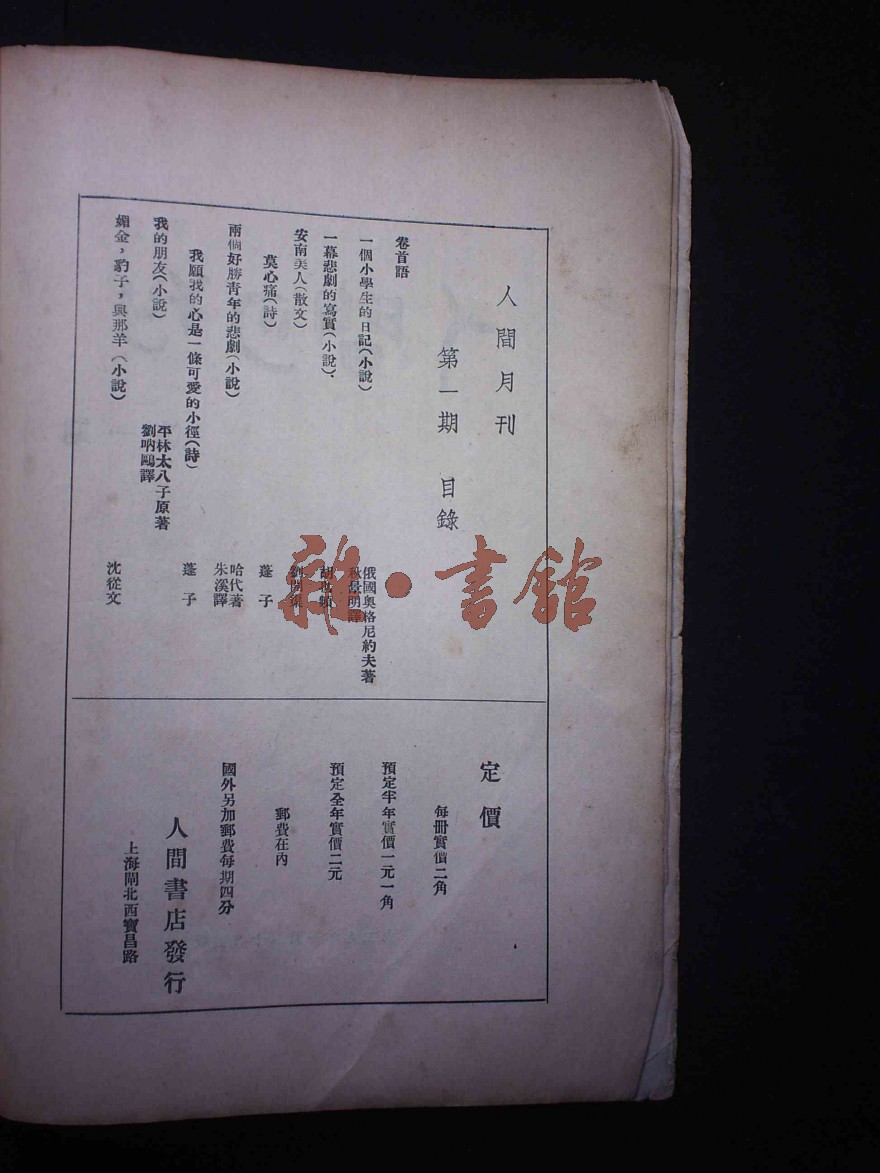 人間月刊
第一期 目錄
卷首語
一個小學生的日記(小說)
俄國奧格尼約夫著
秋景明譯
一幕悲劇的寫實(小說)
安南美人(散文)
莫心痛(詩)
蓬子
兩個好勝青年的悲劇(小說)
哈代著
朱溪譯
我願我的心是一條可愛的小徑(詩)
蓬子
我的朋友(小說)
平林太八子原著
劉吶鷗譯
媚金,豹子,與那羊(小說)
沈從文
定價
每冊實價二角
預定半年實價一元一角
預定全年實價二元
郵費在內
國外另加郵費每期四分
人間書店發行
上海閘北西寶昌路
雜·書館